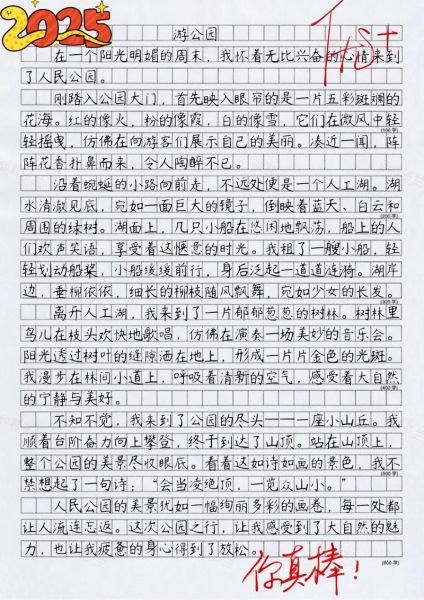 2025
优+
游公园
在一个阳光明媚的周末，我怀着无比兴奋的心情来到
了人民公园。
刚踏入公园大门，首先映入眼帘的是一片五彩斑斓的
花海。红的像火，粉的像霞，白的像雪，它们在微风中轻
轻摇曳，仿佛在向游客们展示自己的美丽。凑近一闻，阵
(100字)
阵花香扑鼻而来，令人陶醉不已。
沿着蜿蜒的小路向前走，不远处便是一个人工湖。湖
水清澈见底，宛如一面巨大的镜子，倒映着蓝天、白云和
周围的绿树。湖面上，几只小船在悠闲地飘荡，船上的人
(200字)
们欢声笑语，享受着这惬意的时光。我租了一艘小船，轻
轻划动船桨，小船缓缓前行，身后泛起一道道涟漪。湖岸
边，垂柳依依，细长的柳枝随风飘舞，宛如少女的长发。
(300字)
离开人工湖，我来到了一片郁郁葱葱的树林。树林里
鸟儿在枝头欢快地歌唱，仿佛在演奏一场美妙的音乐会。
阳光透过树叶的缝隙洒在地上，形成一片片金色的光斑。
我漫步在林间小道上，呼吸着清新的空气，感受着大自然
(400字)
的宁静与美好。
不知不觉，我来到了公园的尽头——一座小山丘。我
顺着台阶奋力向上攀登，终于到达了山顶。站在山顶上，
整个公园的美景尽收眼底。看着这如诗如画的景色，我不
禁想起了一句诗：“会当凌绝顶，一览众山小。”
人民公园的美景犹如一幅绚丽多彩的画卷，每一处都
让人流连忘返。这次公园之行，让我感受到了大自然的魅
力，也让我疲惫的身心得到了放松。
(600字)
你真棒！